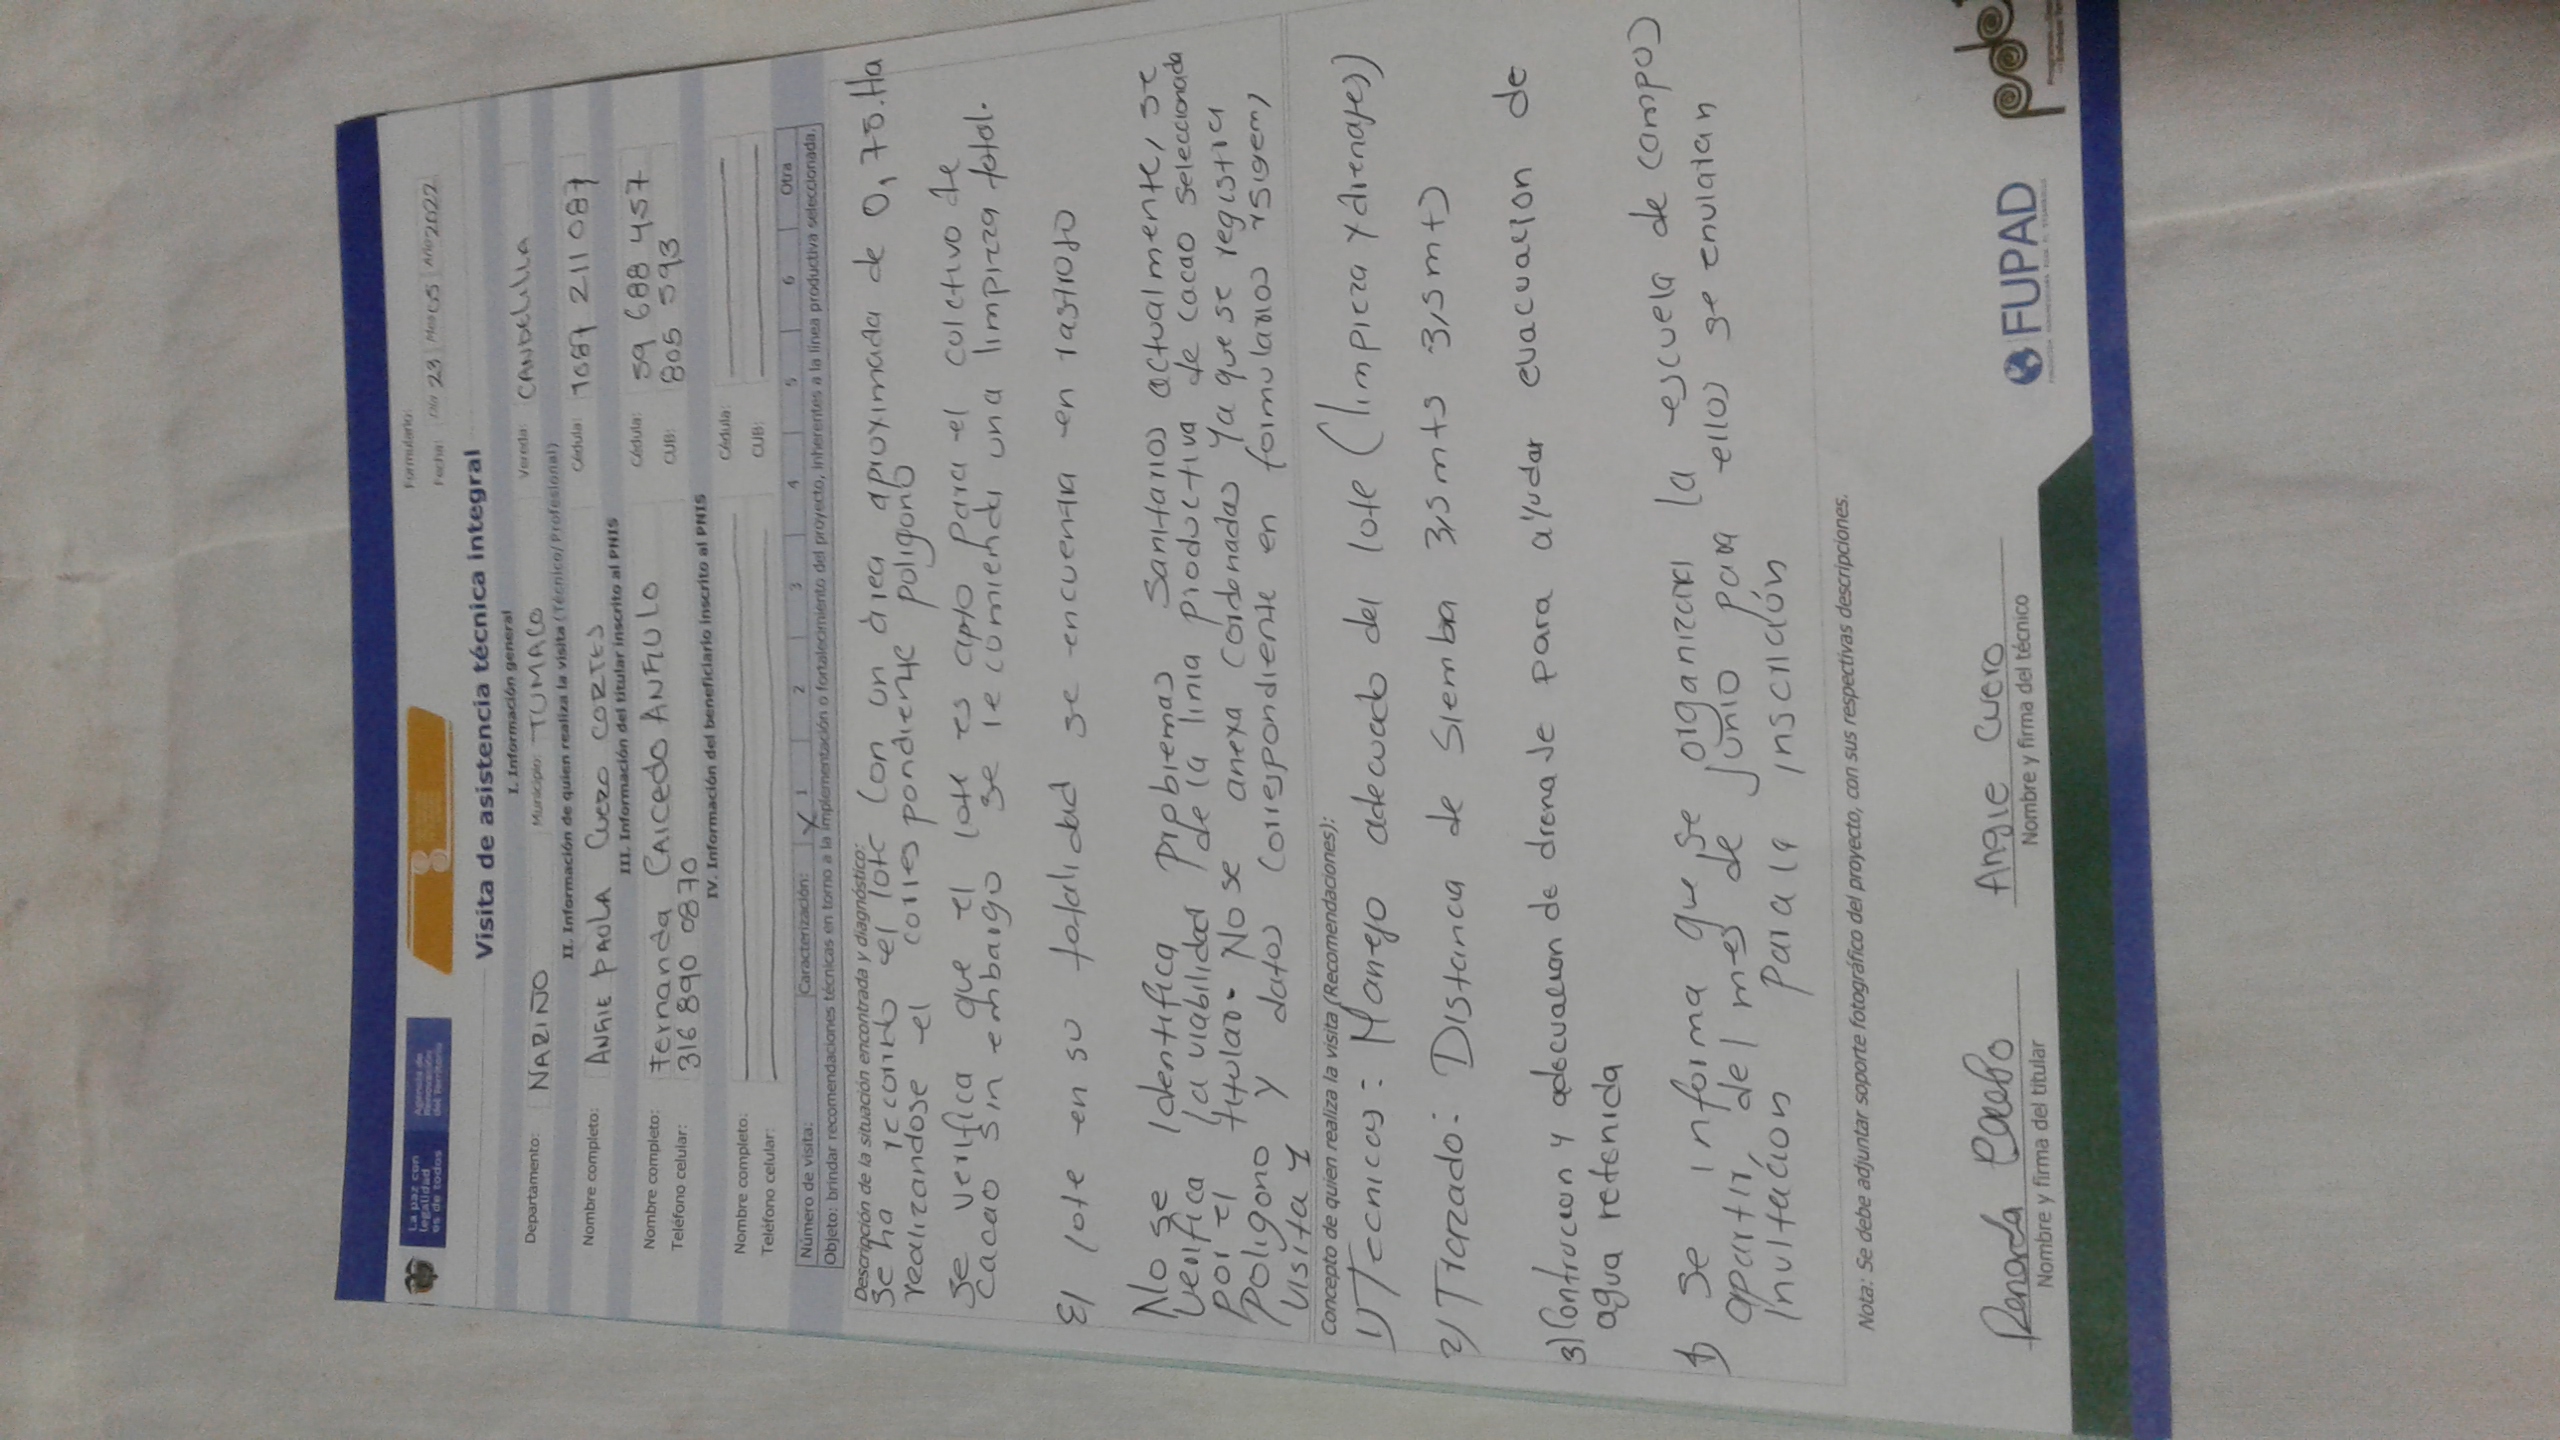 La paz con
legalidad
es de todos
Agencia de
Renovación
del Territorio
Formulario:
Fecha: Día 23 Mes 05 Año 2022
Visita de asistencia técnica integral
I. Información general
Departamento: NARIÑO Municipio: TUMACO Vereda: CANDELILLA
II. Información de quien realiza la visita (Técnico/Profesional)
Nombre completo: ANGIE PAULA CUERO CORTES Cédula: 1087 211 087
III. Información del titular inscrito al PNIS
Nombre completo: Fernanda CAICEDO ANGULO Cédula: 59 688 457
Teléfono celular: 316 890 0870 CUB: 805 593
IV. Información del beneficiario inscrito al PNIS
Nombre completo: Cédula:
Teléfono celular: CUB:
Número de visita: Caracterización: X 1 2 3 4 5 6 Otra
Objeto: brindar recomendaciones técnicas en torno a la implementación o fortalecimiento del proyecto, inherentes a la línea productiva seleccionada.
Descripción de la situación encontrada y diagnóstico:
Se ha recorrido el lote con un área aproximada de 0,75.Ha
realizandose el corres pondiente poligono
Se verifica que el lote es apto para el colectivo de
cacao sin embargo se recomienda una limpieza total.
El lote en su totalidad se encuentra en rastrojo
No se identifica problemas sanitarios actualmente, se
verifica la viabilidad de la linia productiva de cacao seleccionada
por el titular. No se anexa cordenadas ya que se registra
Poligono y datos correspondiente en formularios
visita 1
Concepto de quien realiza la visita (Recomendaciones):
1) Tecnicas: Manejo adecuado del lote (limpieza y drenajes)
2) Trazado: Distancia de Siembra 3,5 mts 3,5 mts 3,5 mt)
3) Contrucion y adecuacion de drenaje para ayudar evacuacion de
agua retenida
1) Se informa que se organizara la escuela de campos
apartir del mes de junio para ellos se enviaran
invitación para la inscrición
Nota: Se debe adjuntar soporte fotográfico del proyecto, con sus respectivas descripciones.
Angie Cuero
Nombre y firma del titular Nombre y firma del técnico
FUPAD